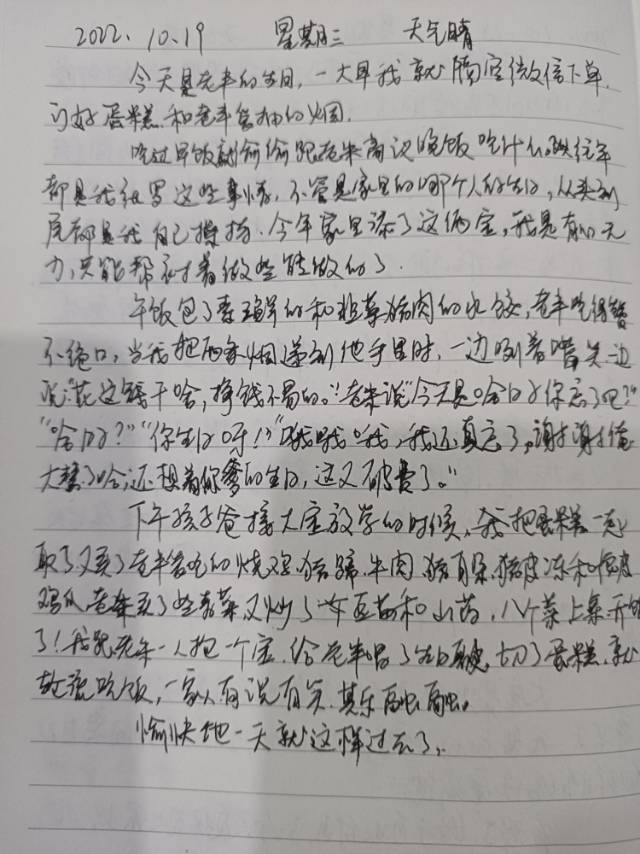 2022.10.19 星期三 天气晴
今天是老丰的生日,一大早我就隔空微信下单,
订好蛋糕和老丰爱抽的烟。
吃过早饭就偷偷跟老朱商议晚饭吃什么。以往年
都是我组罗这些事情,不管是家里的哪个人的生日,从头到
尾都是我自己操持.今年家里添了这俩宝,我是有心无
力,只能帮衬着做些能做的了.
午饭包了的和韭菜猪肉的水饺,老丰吃得赞
不绝口,当我把两条烟递到他手里时,一边咧着嘴笑一边
说:花这钱干啥,挣钱不易的。"老朱说"今天是啥日子你忘了吧?"
"啥日子?""你生日呀!""哦哦哦,我还真忘了。谢谢俺
大慧了哈,还想着你爹的生日,这又破费了。"
下午孩子爸接大宝放学的时候,我把蛋糕一起
取了,又买了老丰爱吃的烧鸡.猪蹄.牛肉.猪耳朵.猪皮冻和
鸡爪,老朱买了些青菜又炒了和山药,八个菜上桌开饭
了!我跟老朱一人抱一个宝.给老丰唱了生日歌,切了蛋糕.就
吃饭,一家人有说有笑.其乐融融。
愉快地一天就这样过去了。